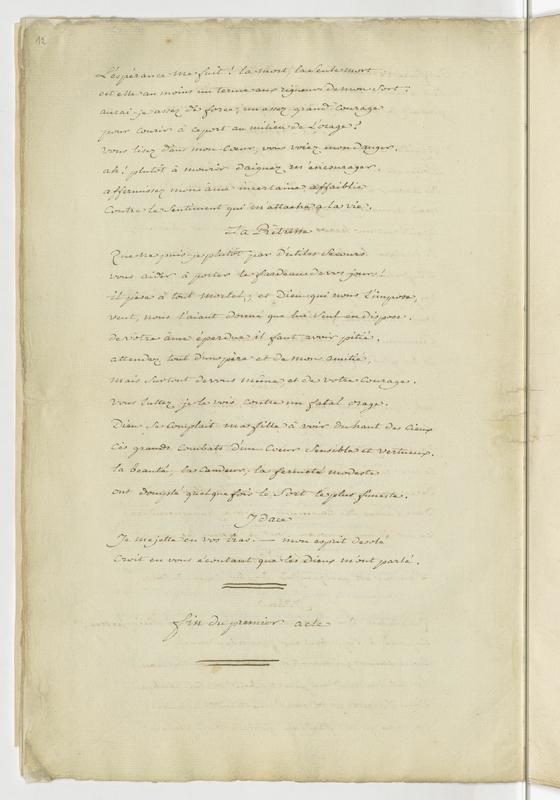 12
L'espérance me fuit! la mort, la seule mort
est elle au moins un terme aux rigueurs de mon sort?
aurai-je assez de force, un assez grand courage
pour courir à ce port au milieu de l'orage?
vous lisez dans mon coeur, vous voiez mon danger.
ah! plutôt à mourir daignez m'encourager.
affermissez mon âme incertaine, affaiblie
contre le sentiment qui m'attache à la vie.
La Prêtresse
Que ne puis-je plutôt par d'utiles secours
vous aider à porter le fardeau de vos jours!
il pèse à tout mortel; et Dieu qui nous l'impose,
veut, nous l'aiant donné que lui seul en dispose.
de votre âme éperdue il faut avoir pitié.
attendez tout d'un père et de mon amitié,
mais surtout de vous même et de votre courage.
vous luttez, je le vois, contre un fatal orage.
Dieu se complait ma fille à voir du haut des cieux
ces grands combats d'un coeur sensible et vertueux.
la beauté, la candeur, la fermeté modeste
ont dompté quelquefois le sort le plus funeste.
Idace
Je me jette en vos bras. — mon esprit desolé
croit en vous écoutant que les Dieux m'ont parlé.
fin du premier acte